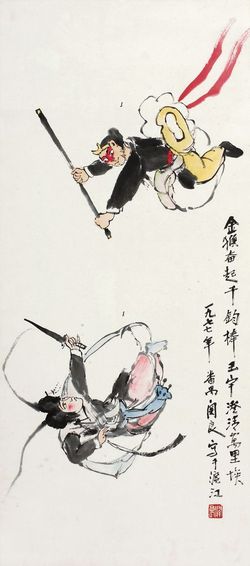 金猴奋起千钧棒玉宇澄清万里埃
一九七七年
番禺関良写于沪江